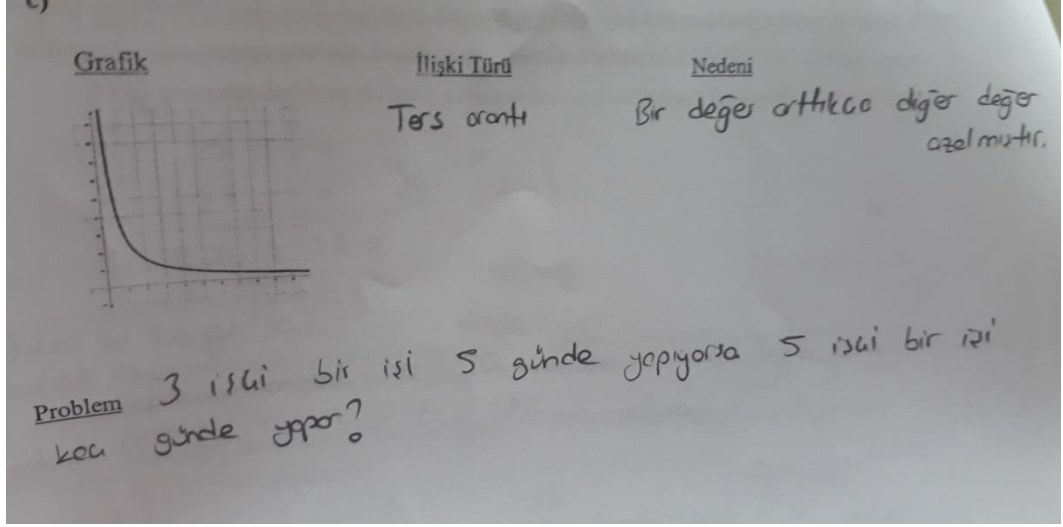 c)
Grafik İlişki Türü Nedeni
Ters orantı Bir değer arttıkca diğer değer
azalmıştır.
Problem 3 işçi bir işi 5 günde yapıyorsa 5 işçi bir işi
kaç günde yapar?